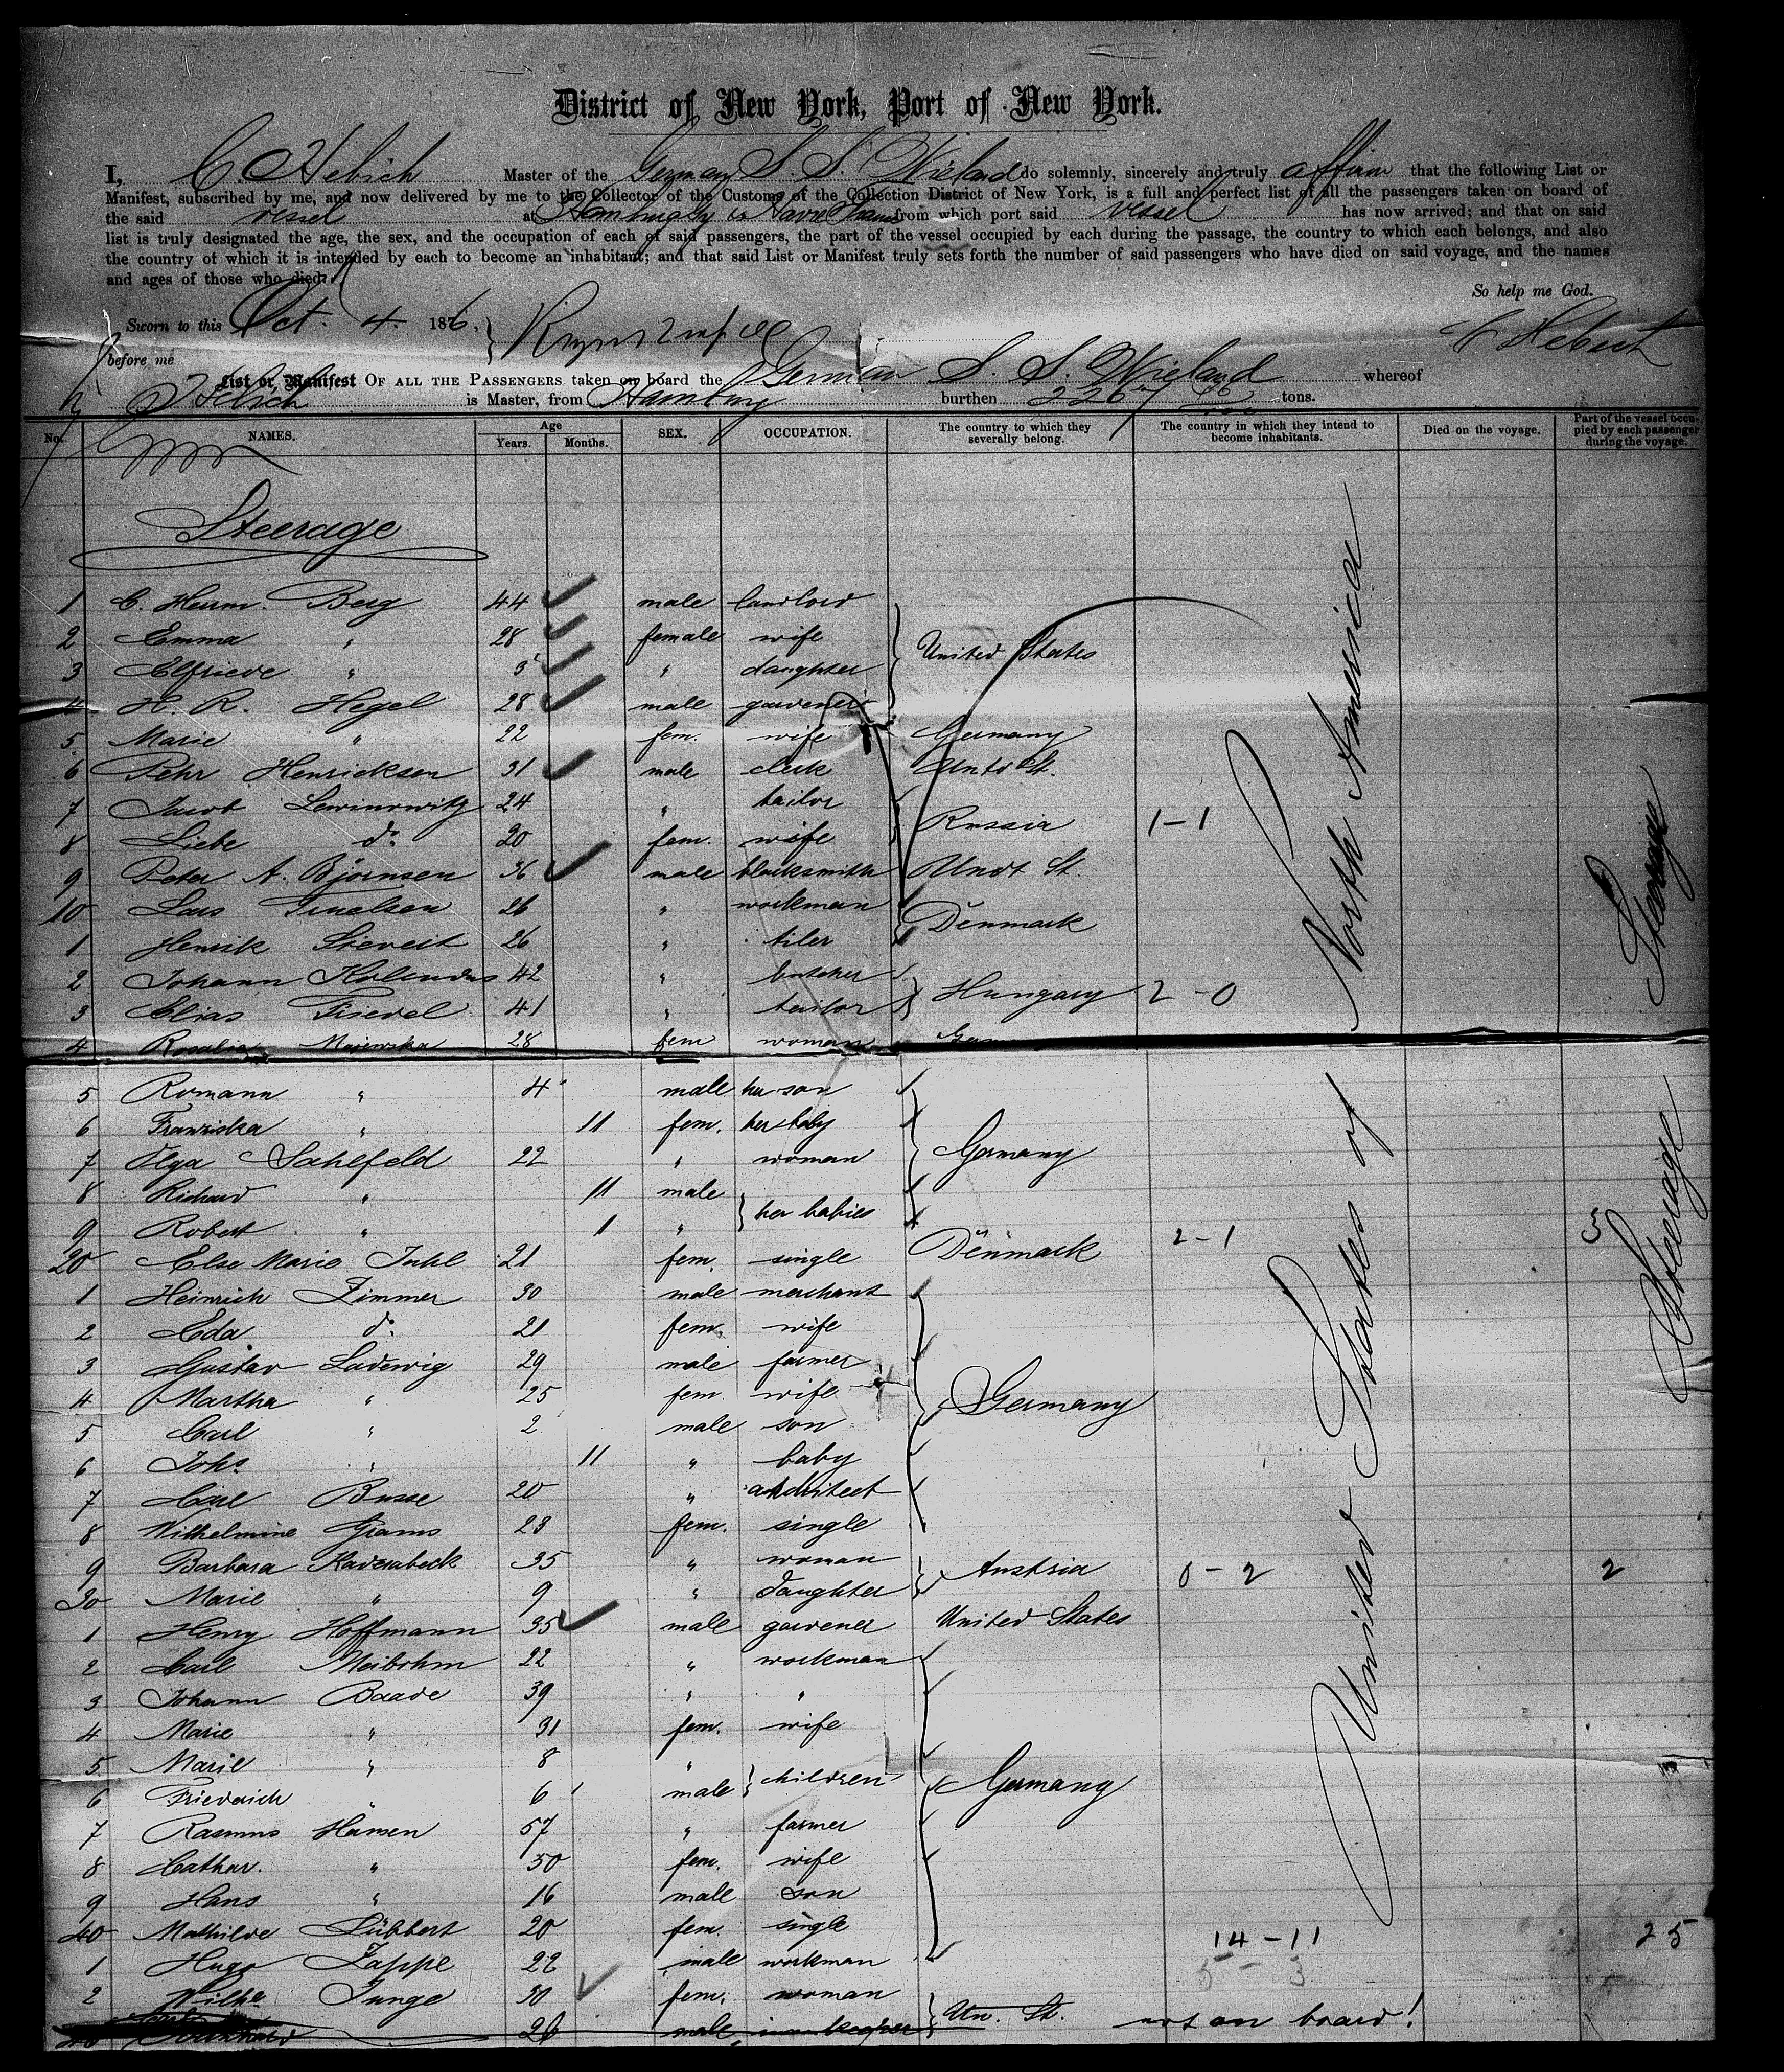 District of New York, Port of New York.
I, C. Hebich Master of the German S. S. Wieland do solemnly, sincerely and truly affirm that the following List or
Manifest, subscribed by me, and now delivered by me to the Collector of the Customs of the Collection District of New York, is a full and perfect list of all the passengers taken on board of
the said vessel at Hamburg & Havre from which port said vessel has now arrived; and that on said
list is truly designated the age, the sex, and the occupation of each of said passengers, the part of the vessel occupied by each during the passage, the country to which each belongs, and also
the country of which it is intended by each to become an inhabitant; and that said List or Manifest truly sets forth the number of said passengers who have died on said voyage, and the names
and ages of those who died.
So help me God.
Sworn to this Oct. 4. 1876,
C Hebich
before me
List or Manifest OF ALL THE PASSENGERS taken on board the German S. S. Wieland whereof
Hebich is Master, from Hamburg burthen 2267 tons.
No. NAMES. Age Years. Months. SEX. OCCUPATION. The country to which they severally belong. The country in which they intend to become inhabitants. Died on the voyage. Part of the vessel occupied by each passenger during the voyage.
Steerage
1 C. Herm. Berg 44 male landlord
2 Emma " 28 female wife United States
3 Elfriede " 5 " daughter
4 H. R. Hegel 28 male gardener
5. Marie " 22 fem. wife Germany
6 Pehr Henricksen 31 male clerk Untd St.
7 Jacob Lewinowitz 24 " tailor Russia 1-1
8 Liebe do 20 fem. wife
9 Peter A. Bjornsen 36 male blacksmith Undt St.
10 Lars 26 " workman Denmark
1 Henrik Sievert 26 " tiler
2 Johann 42 " butcher Hungary 2-0
3 Elias Friedel 41 " tailor
4 Rosalia Majewska 28 fem woman
5 Romann " 4 male her son
6 Franziska " 11 fem. her baby Germany
7 Olga Sahlfeld 22 " woman
8 Richard " 11 male her babies
9 Robert " 1 "
20 Else Marie Juhl 21 fem. single Denmark 2-1 3
1 Heinrich Zimmer 30 male merchant
2 Eda do 21 fem. wife
3 Gustav Ladewig 29 male farmer
4 Martha " 25 fem. wife Germany
5 Carl " 2 male son
6 Johs. " 11 " baby
7 Carl Busse 20 " architect
8 Wilhelmine Grams 23 fem. single
9 Barbara Kaderabeck 35 " woman Austria 0-2 2
30 Marie " 9 " daughter
1 Henry Hoffmann 35 male gardener United States
2 Carl Meibohm 22 " workman
3 Johann Baade 39 " "
4 Marie " 31 fem. wife
5. Marie " 8 " children
6 Friedrich " 6 male Germany
7 Rasmus Hansen 57 " farmer
8 Cathar. " 50 fem. wife
9 Hans " 16 male son
40 Mathilde Lübbert 20 fem. single 14-11 25
1 Hugo Zappe 22 male workman 5-3
2 Wilhe Junge 30 fem. woman
26 male Un. St. not on board!
United States of North America
Steerage
Steerage